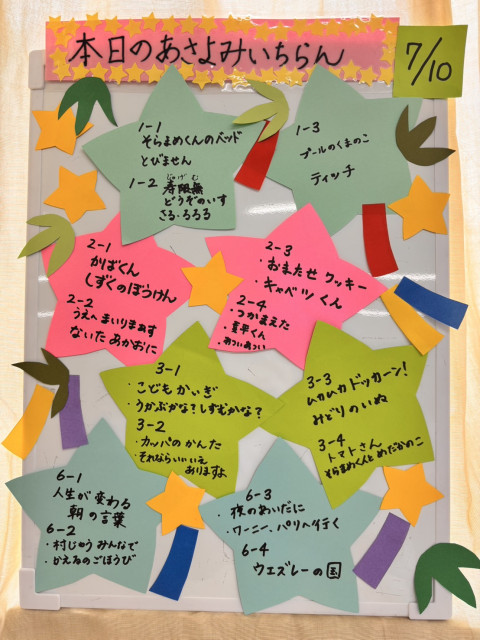 本日のあさよみいちらん
7/10
1-1
そらまめくんのベッド
とびません
1-2 寿限無
じゅげむ
どうぞのいす
さる・るるる
1-3
プールのくまのこ
ティッチ
2-1
かばくん
しずくのぼうけん
2-2
うえへまいりまぁす
ないたあかおに
2-3
・おまたせクッキー
・キャベツくん
2-4
・つかまえた
・平くん
・あついあつい
3-1
・こどもかいぎ
うかぶかな?しずむかな?
3-2
・カッパのかんた
・それならいいいえ
ありますよ
3-3
ムカムカドッカーン!
みどりのいぬ
3-4
トマトさん
そらまめくんとめだかのこ
6-1
人生が変わる
朝の言葉
6-2
・村じゅうみんなで
・かえるのごほうび
6-3
・夜のあいだに
・ワーニー、パリへ行く
6-4
ウエズレーの国